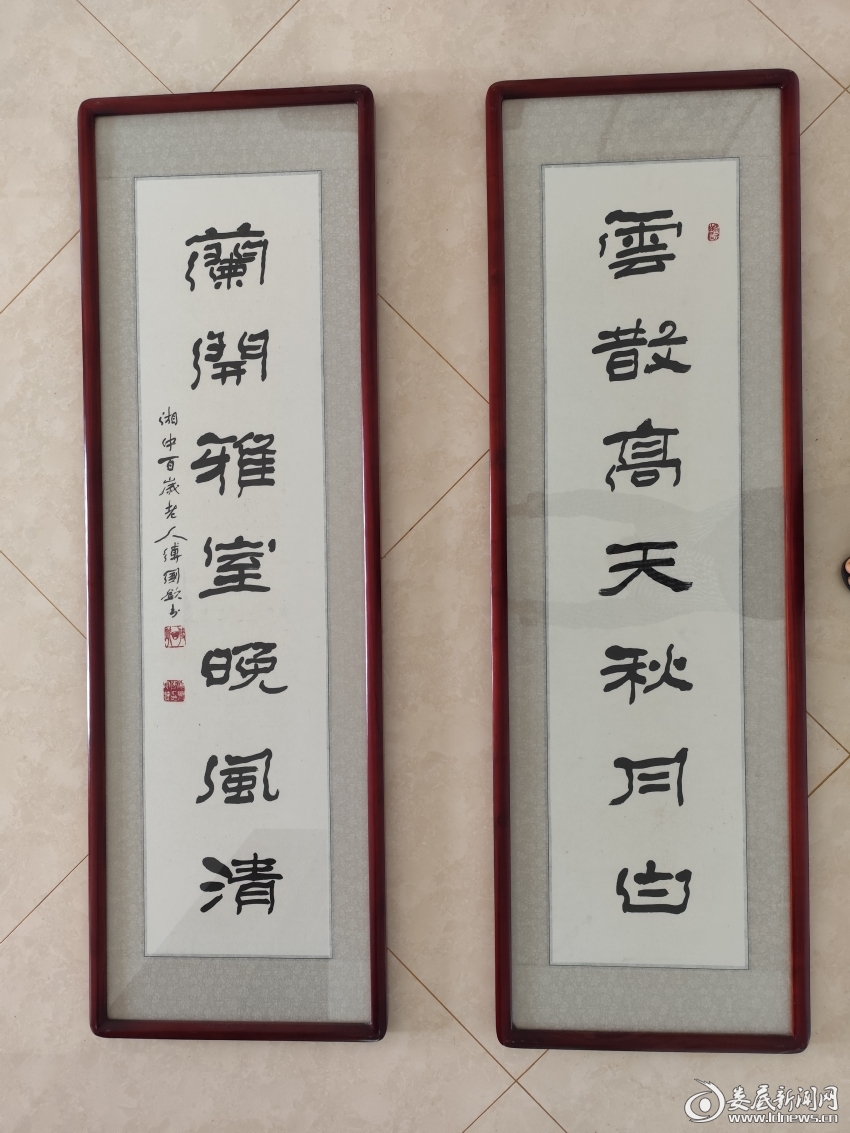 雲散高天秋月白
蘭開雅室晚風清
湘中百歲老人傅國
娄底新闻网
www.ldnews.cn